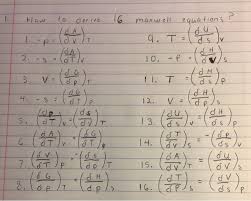 1. How to derive 16 maxwell equations?
1. -p = (dA/dV)T
2. -s = (dA/dT)V
3. V = (dG/dP)T
4. -s = (dG/dT)P
5. (dP/dT)V = (ds/dV)T
6. (dA/dT)V = (dG/dT)P
7. (dV/dT)P = -(ds/dP)T
8. (dG/dP)T = (dH/dP)s
9. T = (dU/ds)V
10. -P = (dH/dV)s
11. T = (dH/ds)P
12. V = (dH/dP)s
13. (dU/ds)V = (dH/ds)P
14. (dT/dV)s = -(dP/ds)V
15. (dA/dV)T = (dU/dV)s
16. (dT/dP)s = (dV/ds)P